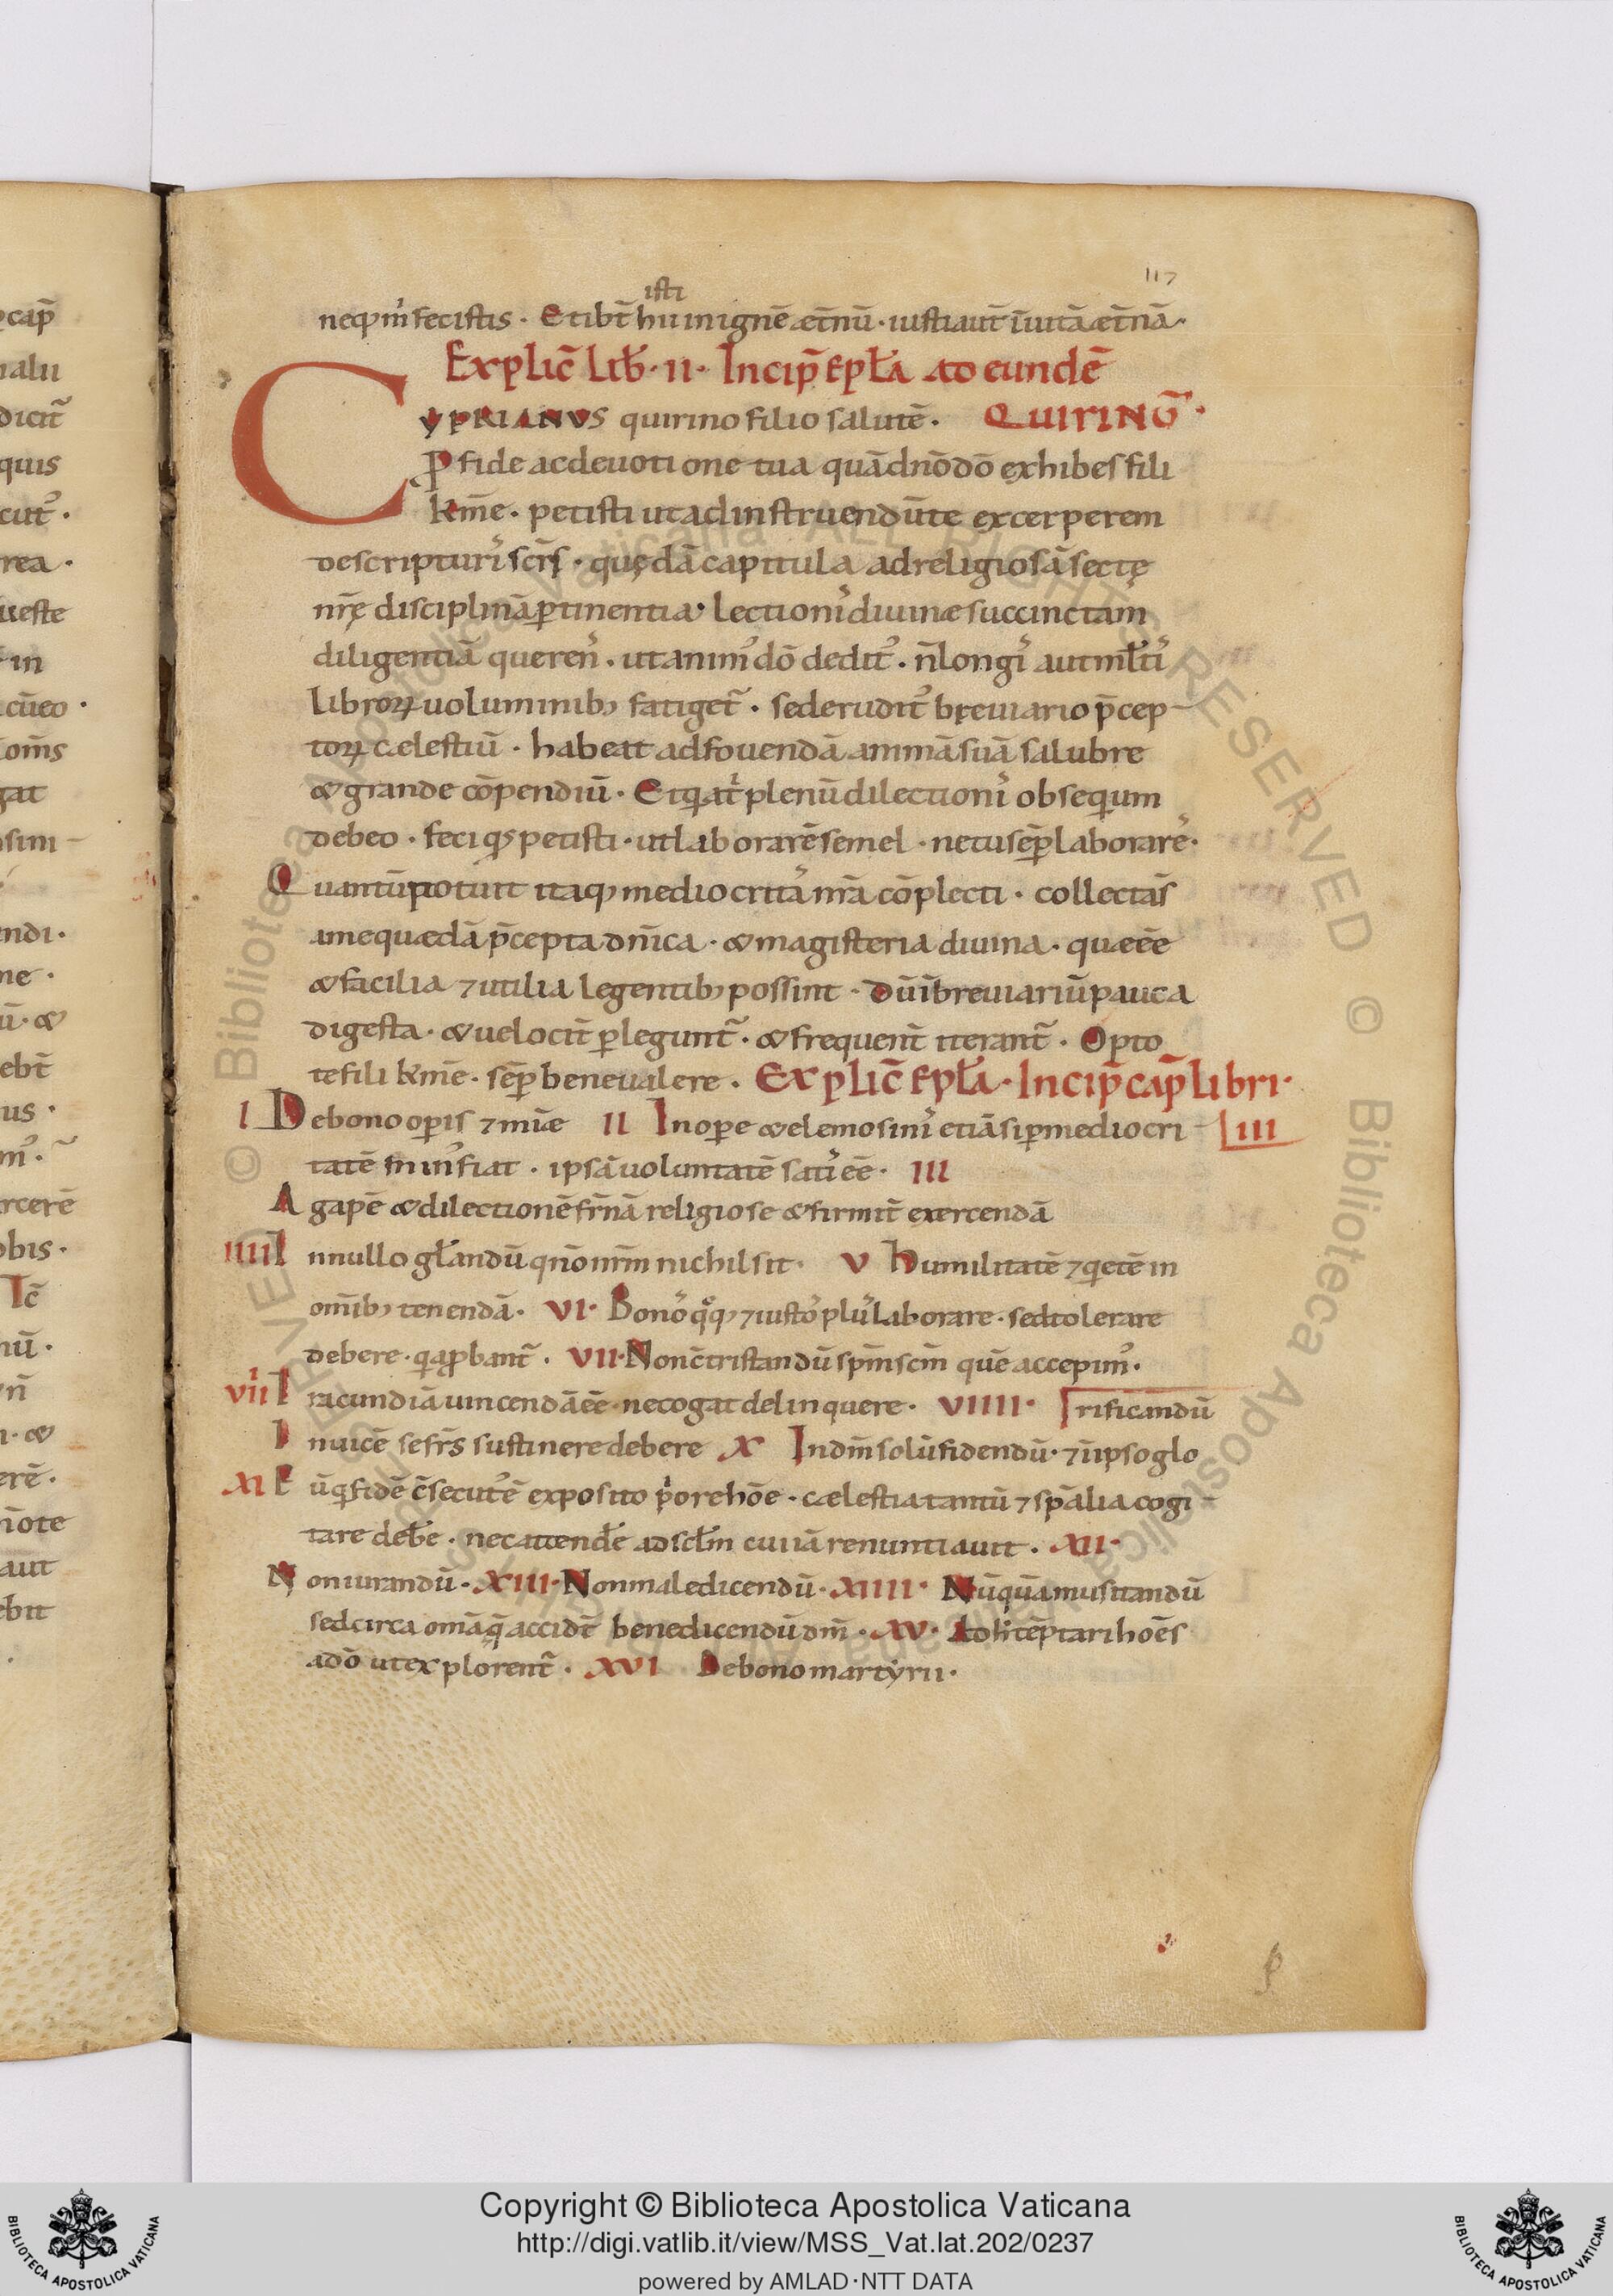 117
isti
neq; m̄ fecistis · Et ibt̄ hi in ignē ætn̄ū · iusti aut̄ ī uitā ætn̄ā ·
Explic̄ Lib̄ · II · Incip̄ Epl̄a ad eundē
CYPRIANVS quirino filio salutē · QUIRINŪ ·
P fide ac deuotione tua quā dn̄o dō exhibes fili
km̄e · petisti ut ad instruendū te excerperem
de scripturis sc̄is · quędā capitula ad religiosā sectę
nr̄ę disciplinā ꝑtinentia · lectionis diuinæ succinctam
diligentiā querens · ut animus dō deditus · n̄ longis aut mlt̄is
libroꝝ uoluminib; fatiget̄ · sed eruditus breuiario p̄cep-
toꝝ cælestiū · habeat ad fouendā animā suā salubre
& grande cōpendiū · Et q̄a t̄ plenū dilectionis obsequium
debeo · feci qd̄ petisti · ut laborarē semel · ne tu sēꝑ laborares ·
Quantū potuit itaq; mediocritas nr̄a cōplecti · collecta s̄
a me quædā p̄cepta dn̄ica · & magisteria diuina · quæ eē
& facilia ⁊ utilia legentib; possint · Dū ī breuiariū pauca
digesta · & uelocit̄ ꝑlegunt̄ · & frequent̄ iterant̄ · Opto
te fili km̄e · sēꝑ bene ualere · Explic̄ Epl̄a · Incip̄ cap̄ libri ·
I De bono oꝑis ⁊ mi͞æ II In oꝑe & elemosinis etiā si ꝑ mediocri- III
tatē minus fiat · ipsā uoluntatē satis eē · III
Agapē & dilectionē fr̄nā religiose & firmit̄ exercendā
IIII In nullo gl̄andū qn̄o nr̄m nichil sit · V humilitatē ⁊ q̄etē in
omīb; tenendā · VI · Bonos qq; ⁊ iustos plus laborare · sed tolerare
debere · q̄a ꝓbant̄ · VII · Non c̄tristandū spm̄ scm̄ quē accepimus ·
VIII Iracundiā uincendā eē · ne cogat delinquere · VIIII · Irificandū
Inuicē se fr̄s sustinere debere X In dn̄m solū fidendū · ⁊ ī ipso glo
XI Eū q̄ fidē c̄secutus ē exposito p̄ore hōe · cælestia tantū ⁊ sp̄alia cogi-
tare deb̄e · nec attend̄e ad scl̄m cui iā renuntiauit · XII ·
Non iurandū · XIII · Non maledicendū · XIIII · Nūquā musitandū
sed circa omā q̄ accidt̄ benedicendū dm̄ · XV · Ad h̄ tēptari hoēs
a dō ut explorent̄ · XVI De bono martyrii ·
Copyright © Biblioteca Apostolica Vaticana
http://digi.vatlib.it/view/MSS_Vat.lat.202/0237
powered by AMLAD·NTT DATA